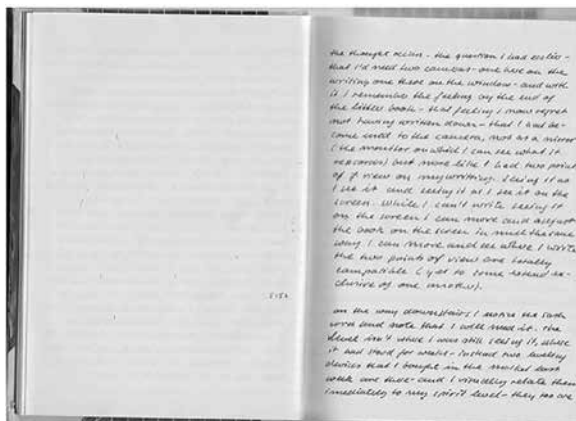 5:52
the thought recurs - the question I had earlier -
that I'd need two cameras - one here on the
writing one there on the window - and with
it I remember the feeling on the end of
the littles book - that feeling I now regret
not having written down - that I had be-
come used to the camera, not as a mirror
(the monitor on which I can see what it
records) but more like I had two points
of view on my writing. Seeing it as
I see it and seeing it as I see it on the
screen. While I can't write seeing it
on the screen I can move and adjust
the book on the screen in much the same
way I can move and see where I write
the two points of view are totally
compatible (yet to some extend ex-
clusive of one another).
on the way downstairs I notice the
word and note that I will need it. the
level isn't where I was still seeing it, where
it had stood for weeks - instead two
devices that I bought in the market last
week are there - and I visually relate them
immediately to my spirit level - they too are